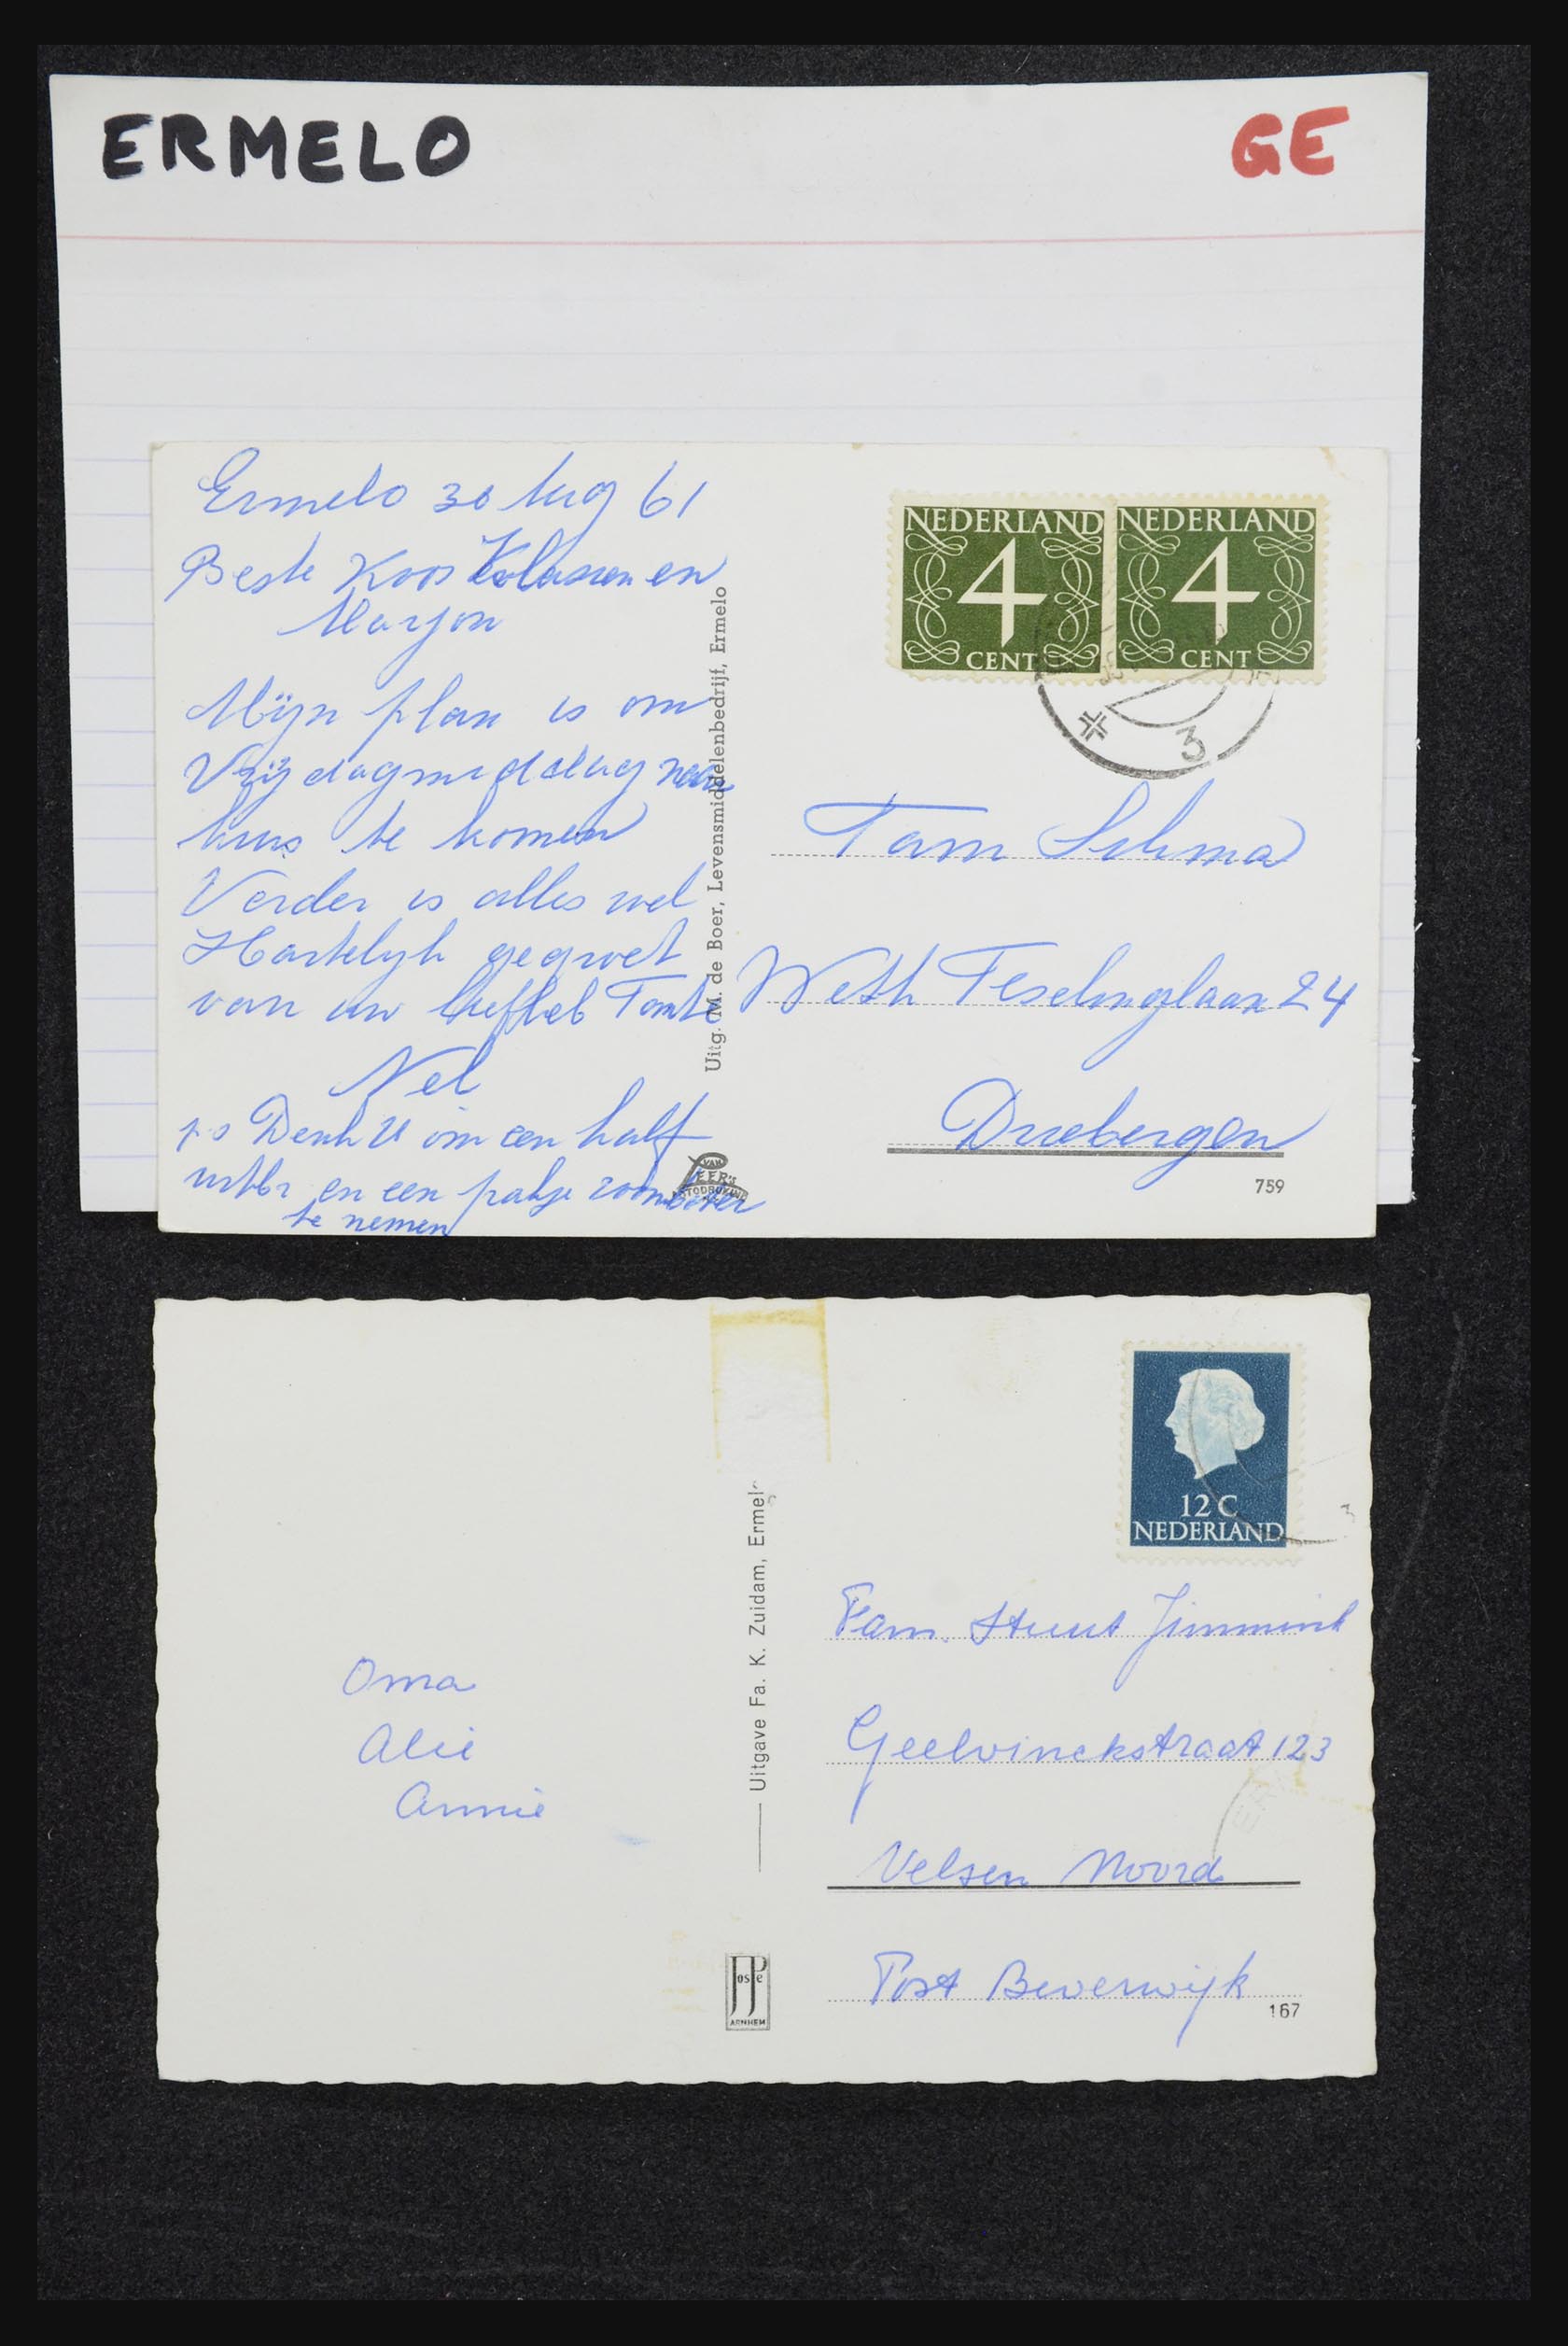 ERMELO
GE
Ermelo 30 Aug 61
Beste Koos en
Marjon
Mijn plan is om
Vrijdagmiddag naar
huis te komen
Verder is alles wel
Hartelijk gegroet
van uw liefheb Tante
Nel
ps Denk U om een half
en een pakje roomboter
te nemen
Uitg. M. de Boer, Levensmiddelenbedrijf, Ermelo
NEDERLAND
4
CENT
NEDERLAND
4
CENT
3
Fam
Weth 24
Driebergen
VAN LEER'S
FOTODRUKIND
759
12 C
NEDERLAND
3
Oma
Alie
Annie
Uitgave Fa. K. Zuidam, Ermel
Fam. Stuut Jimmink
Geelvinckstraat 123
ER
Velsen Noord
Post Beverwijk
JosPe
ARNHEM
167